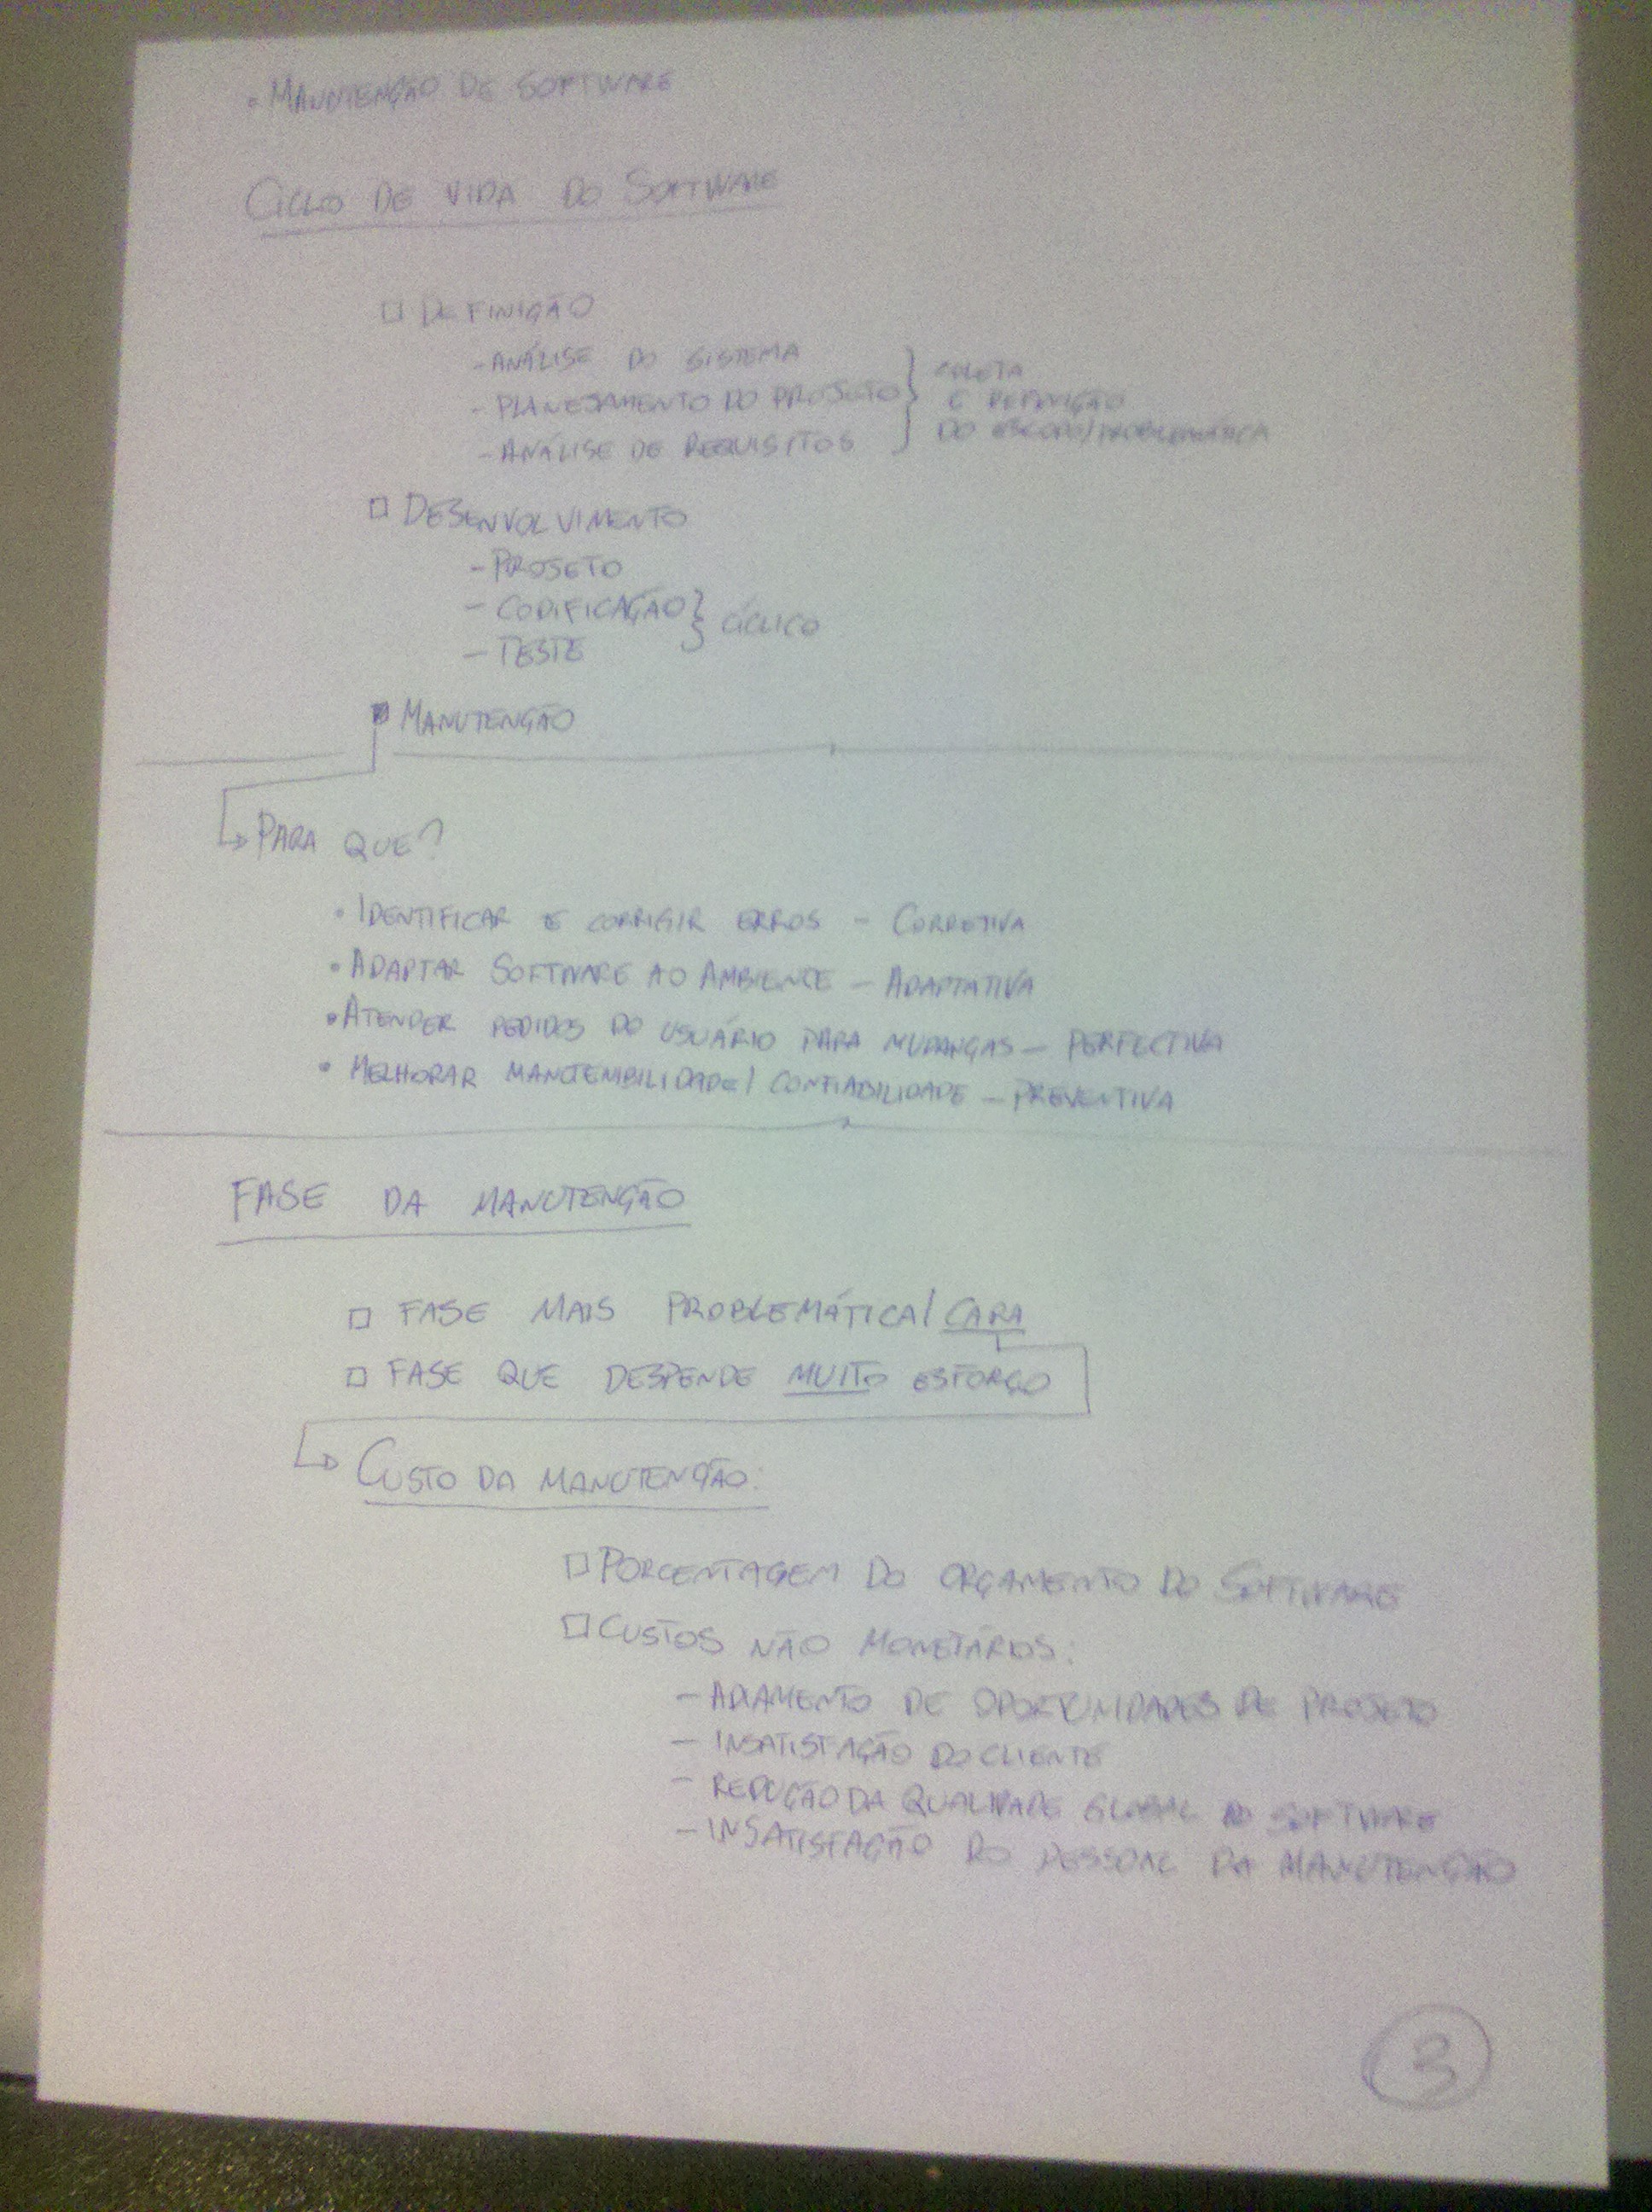 • MANUTENÇÃO DE SOFTWARE
CICLO DE VIDA DO SOFTWARE
□ DEFINIÇÃO
- ANÁLISE DO SISTEMA
- PLANEJAMENTO DO PROJETO
- ANÁLISE DE REQUISITOS
COLETA
E DEFINIÇÃO
DO ESCOPO/PROBLEMÁTICA
□ DESENVOLVIMENTO
- PROJETO
- CODIFICAÇÃO
- TESTE
CÍCLICO
■ MANUTENÇÃO
↳ PARA QUE?
• IDENTIFICAR E CORRIGIR ERROS - CORRETIVA
• ADAPTAR SOFTWARE AO AMBIENTE - ADAPTATIVA
• ATENDER PEDIDOS DO USUÁRIO PARA MUDANÇAS - PERFECTIVA
• MELHORAR MANUTEMBILIDADE/CONFIABILIDADE - PREVENTIVA
FASE DA MANUTENÇÃO
□ FASE MAIS PROBLEMÁTICA/CARA
□ FASE QUE DESPENDE MUITO ESFORÇO
↳ CUSTO DA MANUTENÇÃO:
□ PORCENTAGEM DO ORÇAMENTO DO SOFTWARE
□ CUSTOS NÃO MONETÁRIOS:
- ADIAMENTO DE OPORTUNIDADES DE PROJETO
- INSATISFAÇÃO DO CLIENTE
- REDUÇÃO DA QUALIDADE GLOBAL DO SOFTWARE
- INSATISFAÇÃO DO PESSOAL DA MANUTENÇÃO
3